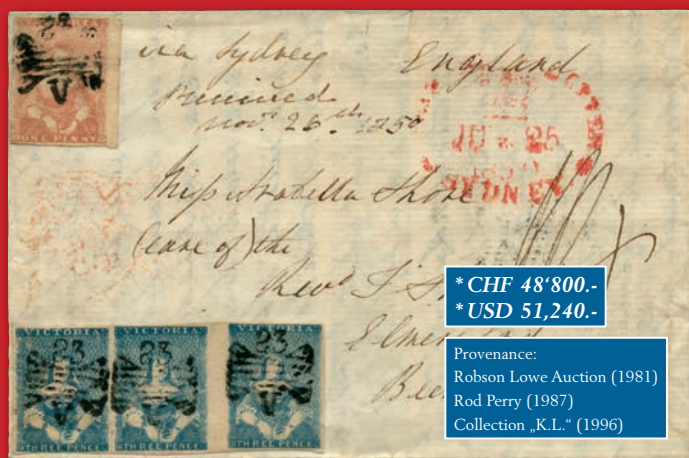 23
V A
ONE PENNY
via Sydney England
received
Nov. 26th 1850
JU 25
SYDNEY
Miss Arabella Shore
(care of) the
Revd T
Elmers
VICTORIA VICTORIA VICTORIA
23 23 23
THREE PENCE THREE PENCE THREE PENCE
* CHF 48'800.-
* USD 51,240.-
Provenance:
Robson Lowe Auction (1981)
Rod Perry (1987)
Collection „K.L.“ (1996)